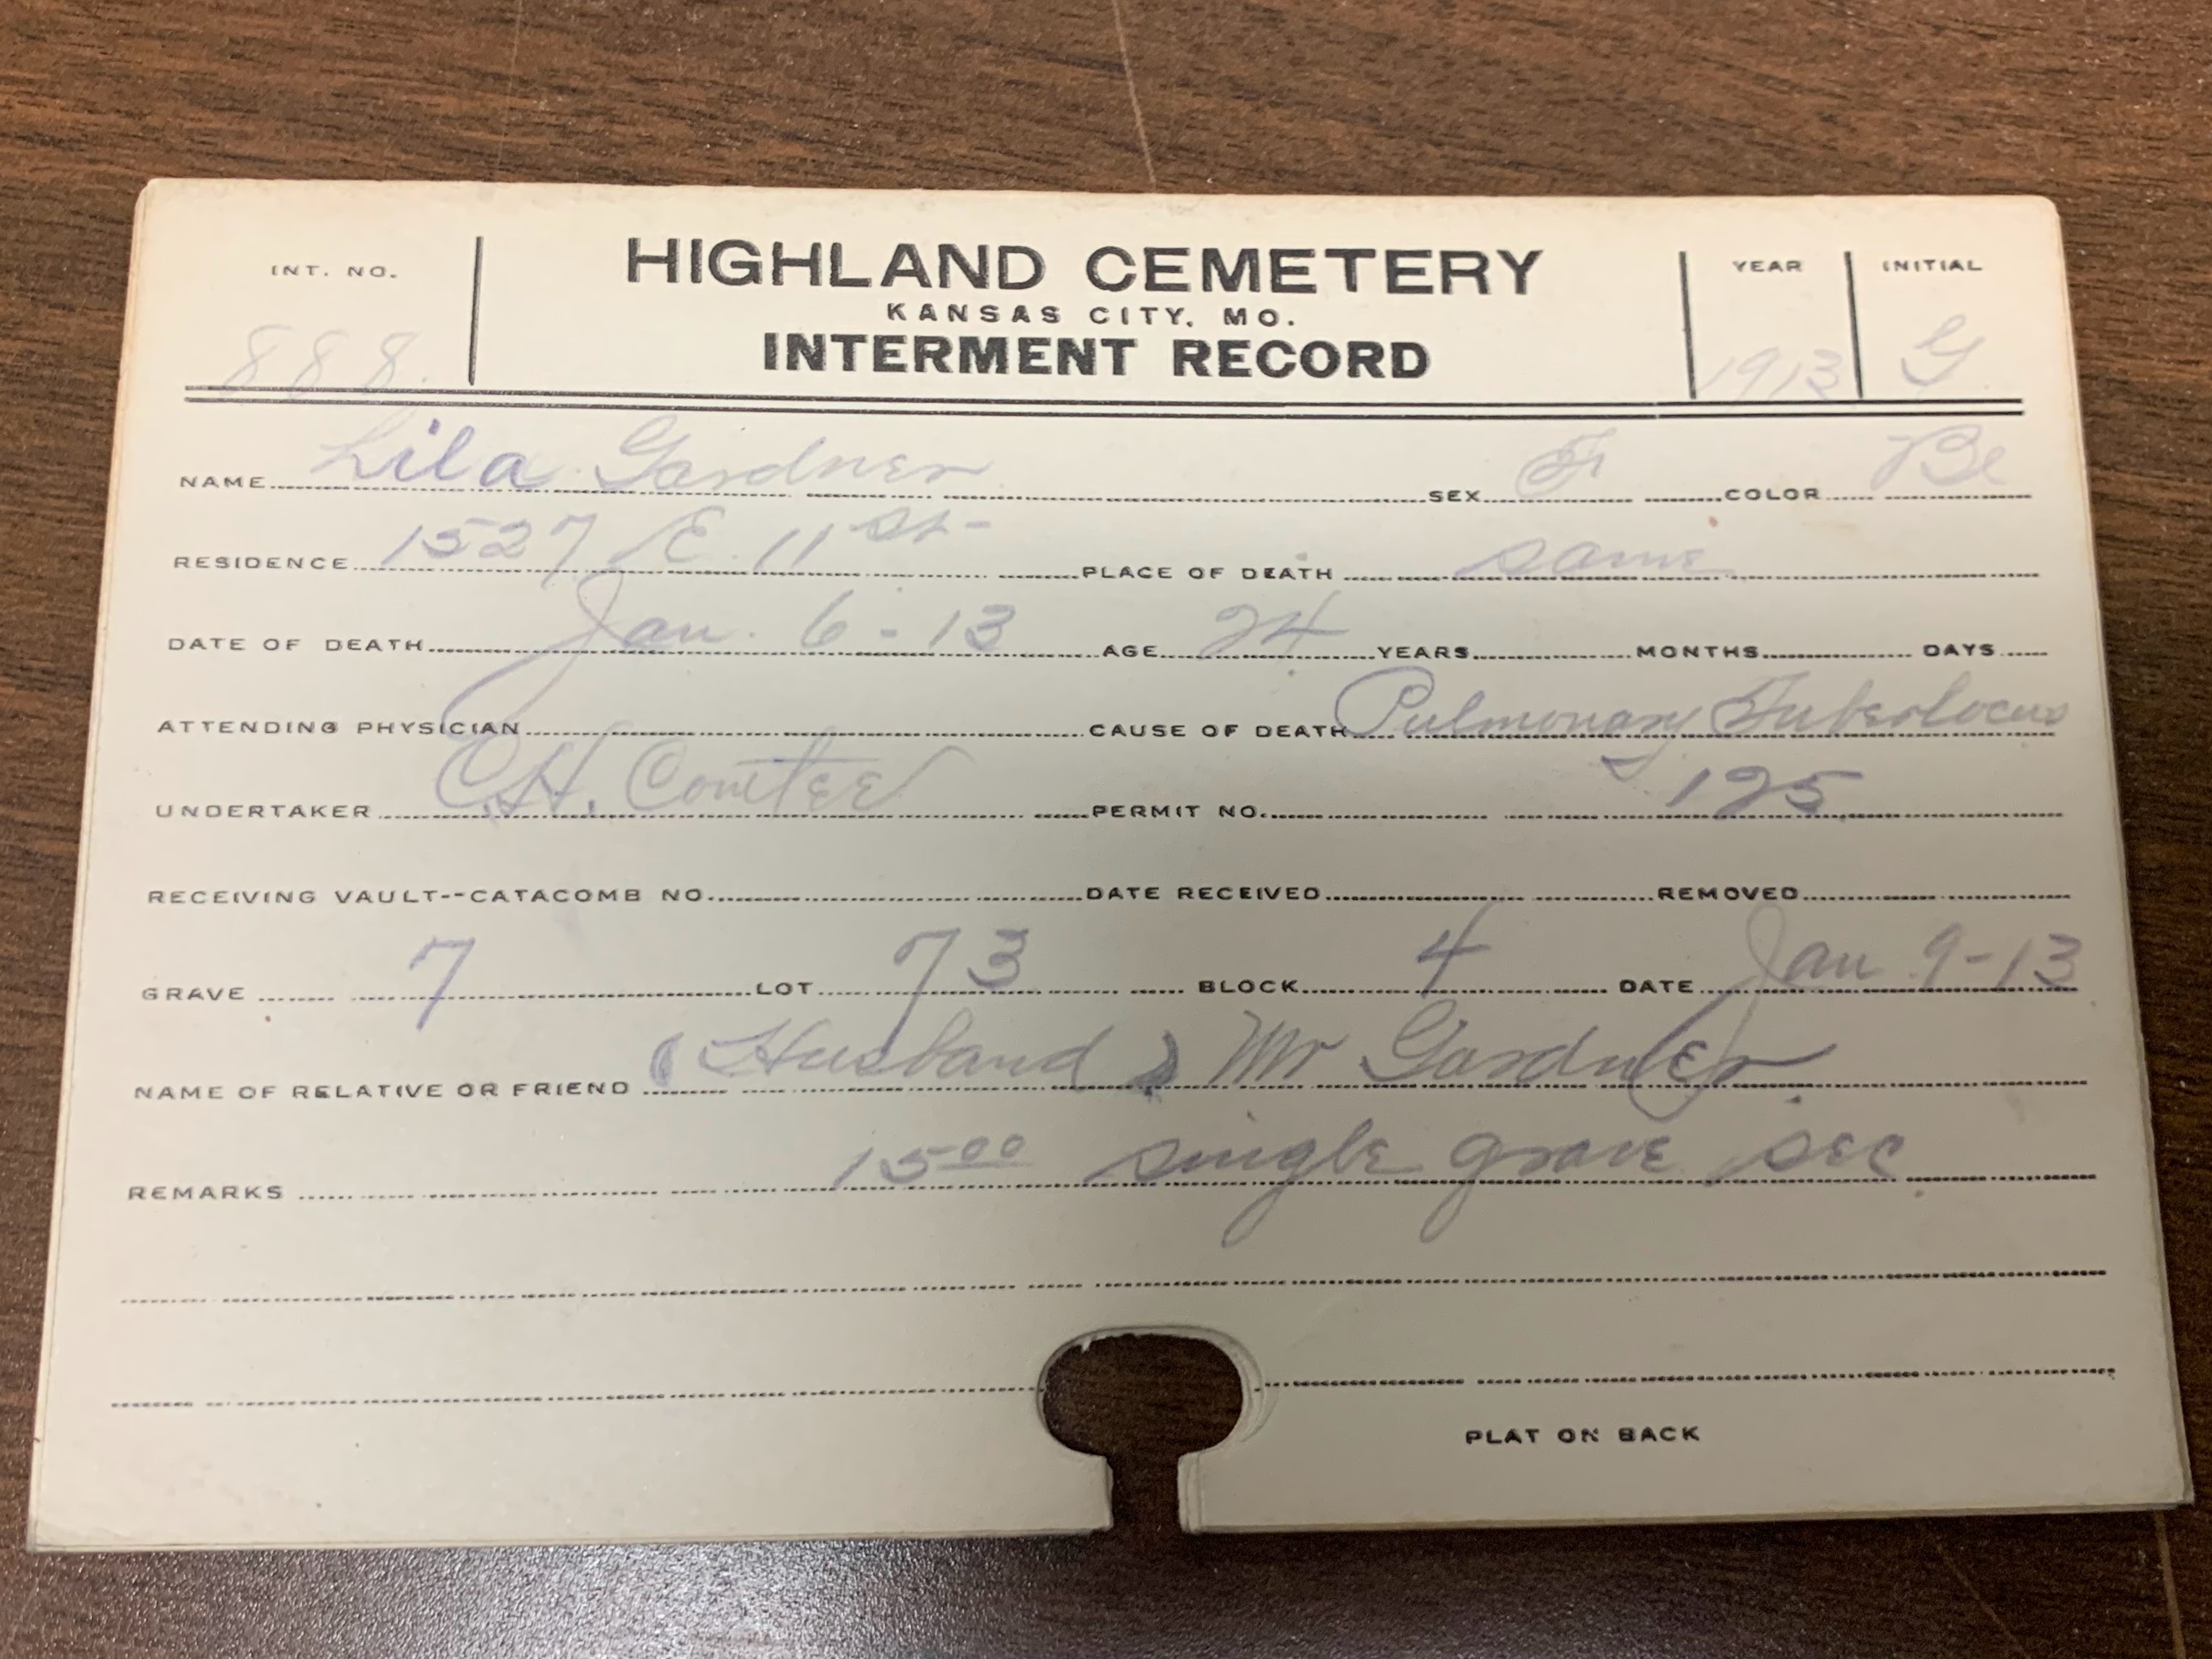 INT. NO. HIGHLAND CEMETERY YEAR INITIAL
KANSAS CITY, MO.
888 INTERMENT RECORD 1913 G
NAME Lila Gardner SEX F COLOR Be
RESIDENCE 1527 E. 11 St- PLACE OF DEATH same
DATE OF DEATH Jan. 6-13 AGE 24 YEARS MONTHS DAYS
ATTENDING PHYSICIAN CAUSE OF DEATH Pulmonary Tuberlocus
UNDERTAKER C.H. Comtee PERMIT NO. 125
RECEIVING VAULT--CATACOMB NO. DATE RECEIVED REMOVED
GRAVE 7 LOT 73 BLOCK 4 DATE Jan 9-13
NAME OF RELATIVE OR FRIEND (Husband) Mr Gardner
REMARKS 15 00 single grave sec
PLAT ON BACK